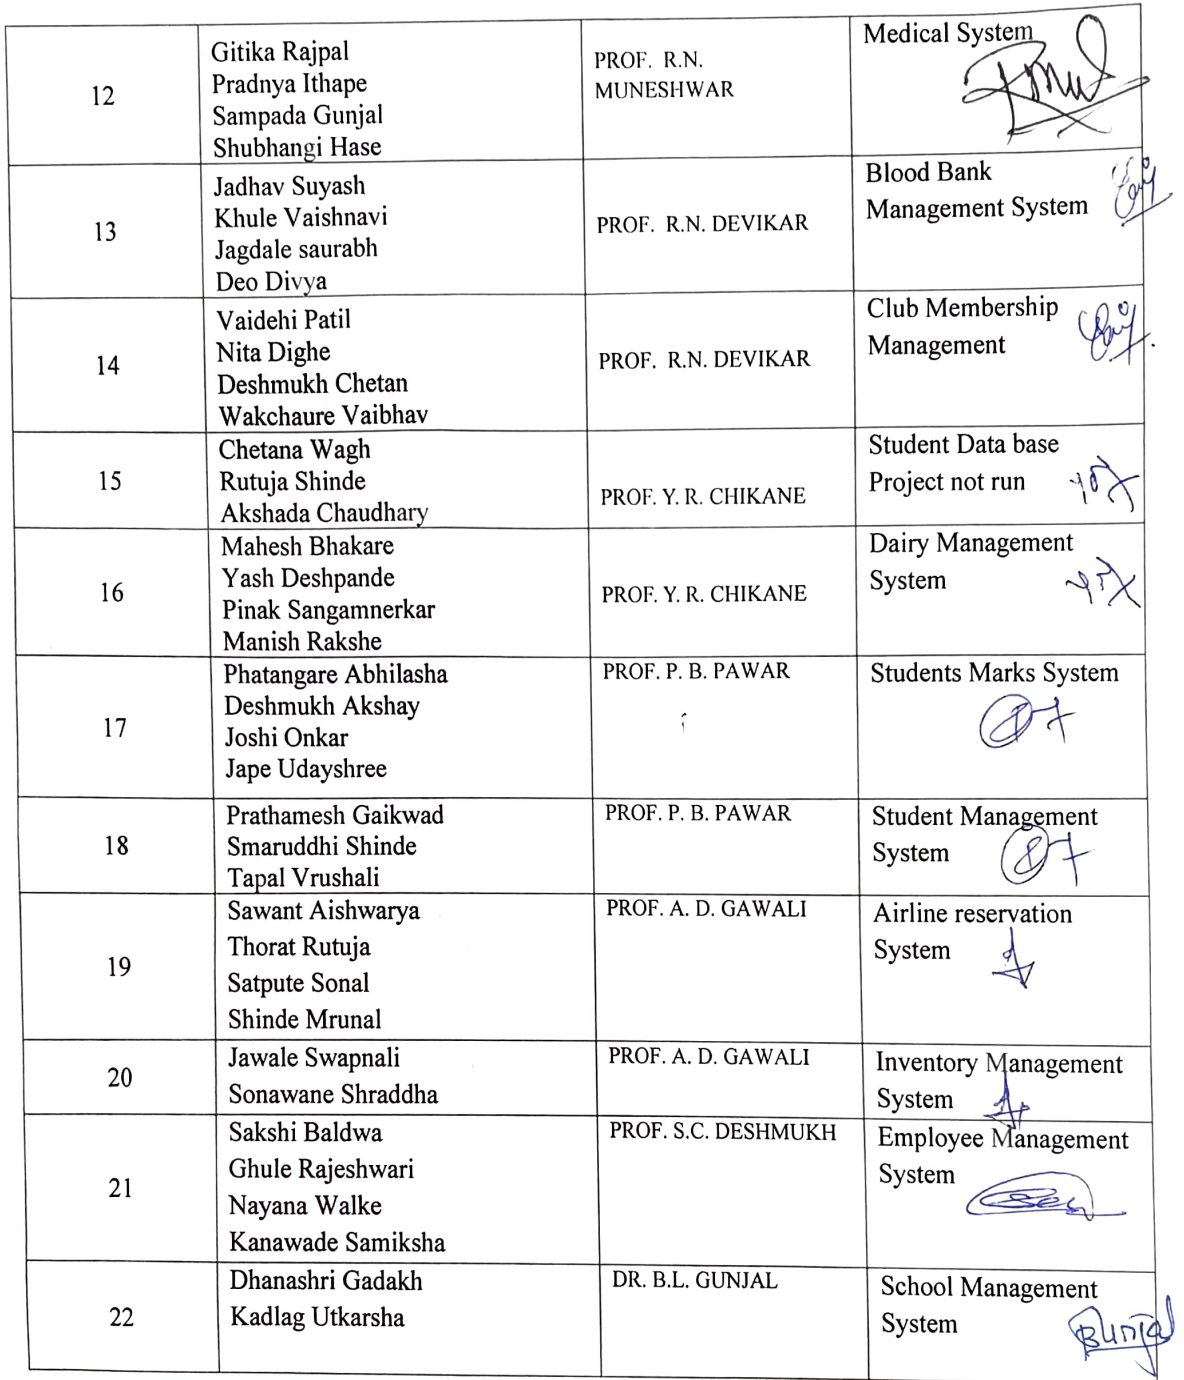 12
Gitika Rajpal
Pradnya Ithape
Sampada Gunjal
Shubhangi Hase
PROF. R.N.
MUNESHWAR
Medical System
13
Jadhav Suyash
Khule Vaishnavi
Jagdale saurabh
Deo Divya
PROF. R.N. DEVIKAR
Blood Bank
Management System
14
Vaidehi Patil
Nita Dighe
Deshmukh Chetan
Wakchaure Vaibhav
PROF. R.N. DEVIKAR
Club Membership
Management
15
Chetana Wagh
Rutuja Shinde
Akshada Chaudhary
PROF. Y. R. CHIKANE
Student Data base
Project not run
16
Mahesh Bhakare
Yash Deshpande
Pinak Sangamnerkar
Manish Rakshe
PROF. Y. R. CHIKANE
Dairy Management
System
17
Phatangare Abhilasha
Deshmukh Akshay
Joshi Onkar
Jape Udayshree
PROF. P. B. PAWAR
Students Marks System
18
Prathamesh Gaikwad
Smaruddhi Shinde
Tapal Vrushali
PROF. P. B. PAWAR
Student Management
System
19
Sawant Aishwarya
Thorat Rutuja
Satpute Sonal
Shinde Mrunal
PROF. A. D. GAWALI
Airline reservation
System
20
Jawale Swapnali
Sonawane Shraddha
PROF. A. D. GAWALI
Inventory Management
System
21
Sakshi Baldwa
Ghule Rajeshwari
Nayana Walke
Kanawade Samiksha
PROF. S.C. DESHMUKH
Employee Management
System
22
Dhanashri Gadakh
Kadlag Utkarsha
DR. B.L. GUNJAL
School Management
System
Bunjal